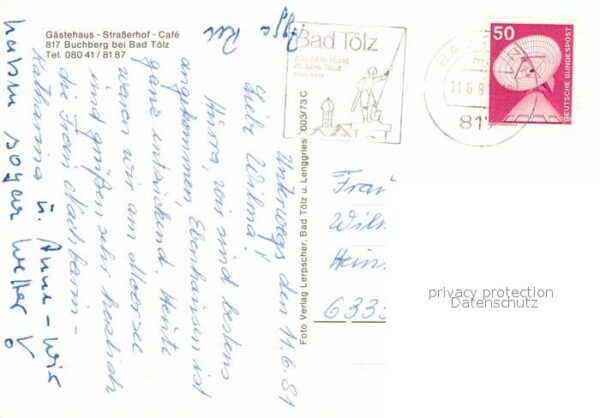 Gästehaus - Straßerhof - Café
817 Buchberg bei Bad Tölz
Tel. 0 80 41 / 81 87
Unterwegs den 11.6.81
Liebe Wilma!
Hurra, wir sind bestens
angekommen, Ebenhausen ist
ganz entzückend. Heute
waren wir am
und grüßen sehr herzlich
die Frau Nachbarin -
Katharina u. Anne - wir
haben sogar Wetter!
Foto Verlag Lerpscher, Bad Tölz u. Lenggries 003/73 C
Bad Tölz
650 Jahre Markt
75 Jahre Stadt
817
11.6.8
50
DEUTSCHE BUNDESPOST
Frau
Wil
Hein
633
privacy protection
Datenschutz